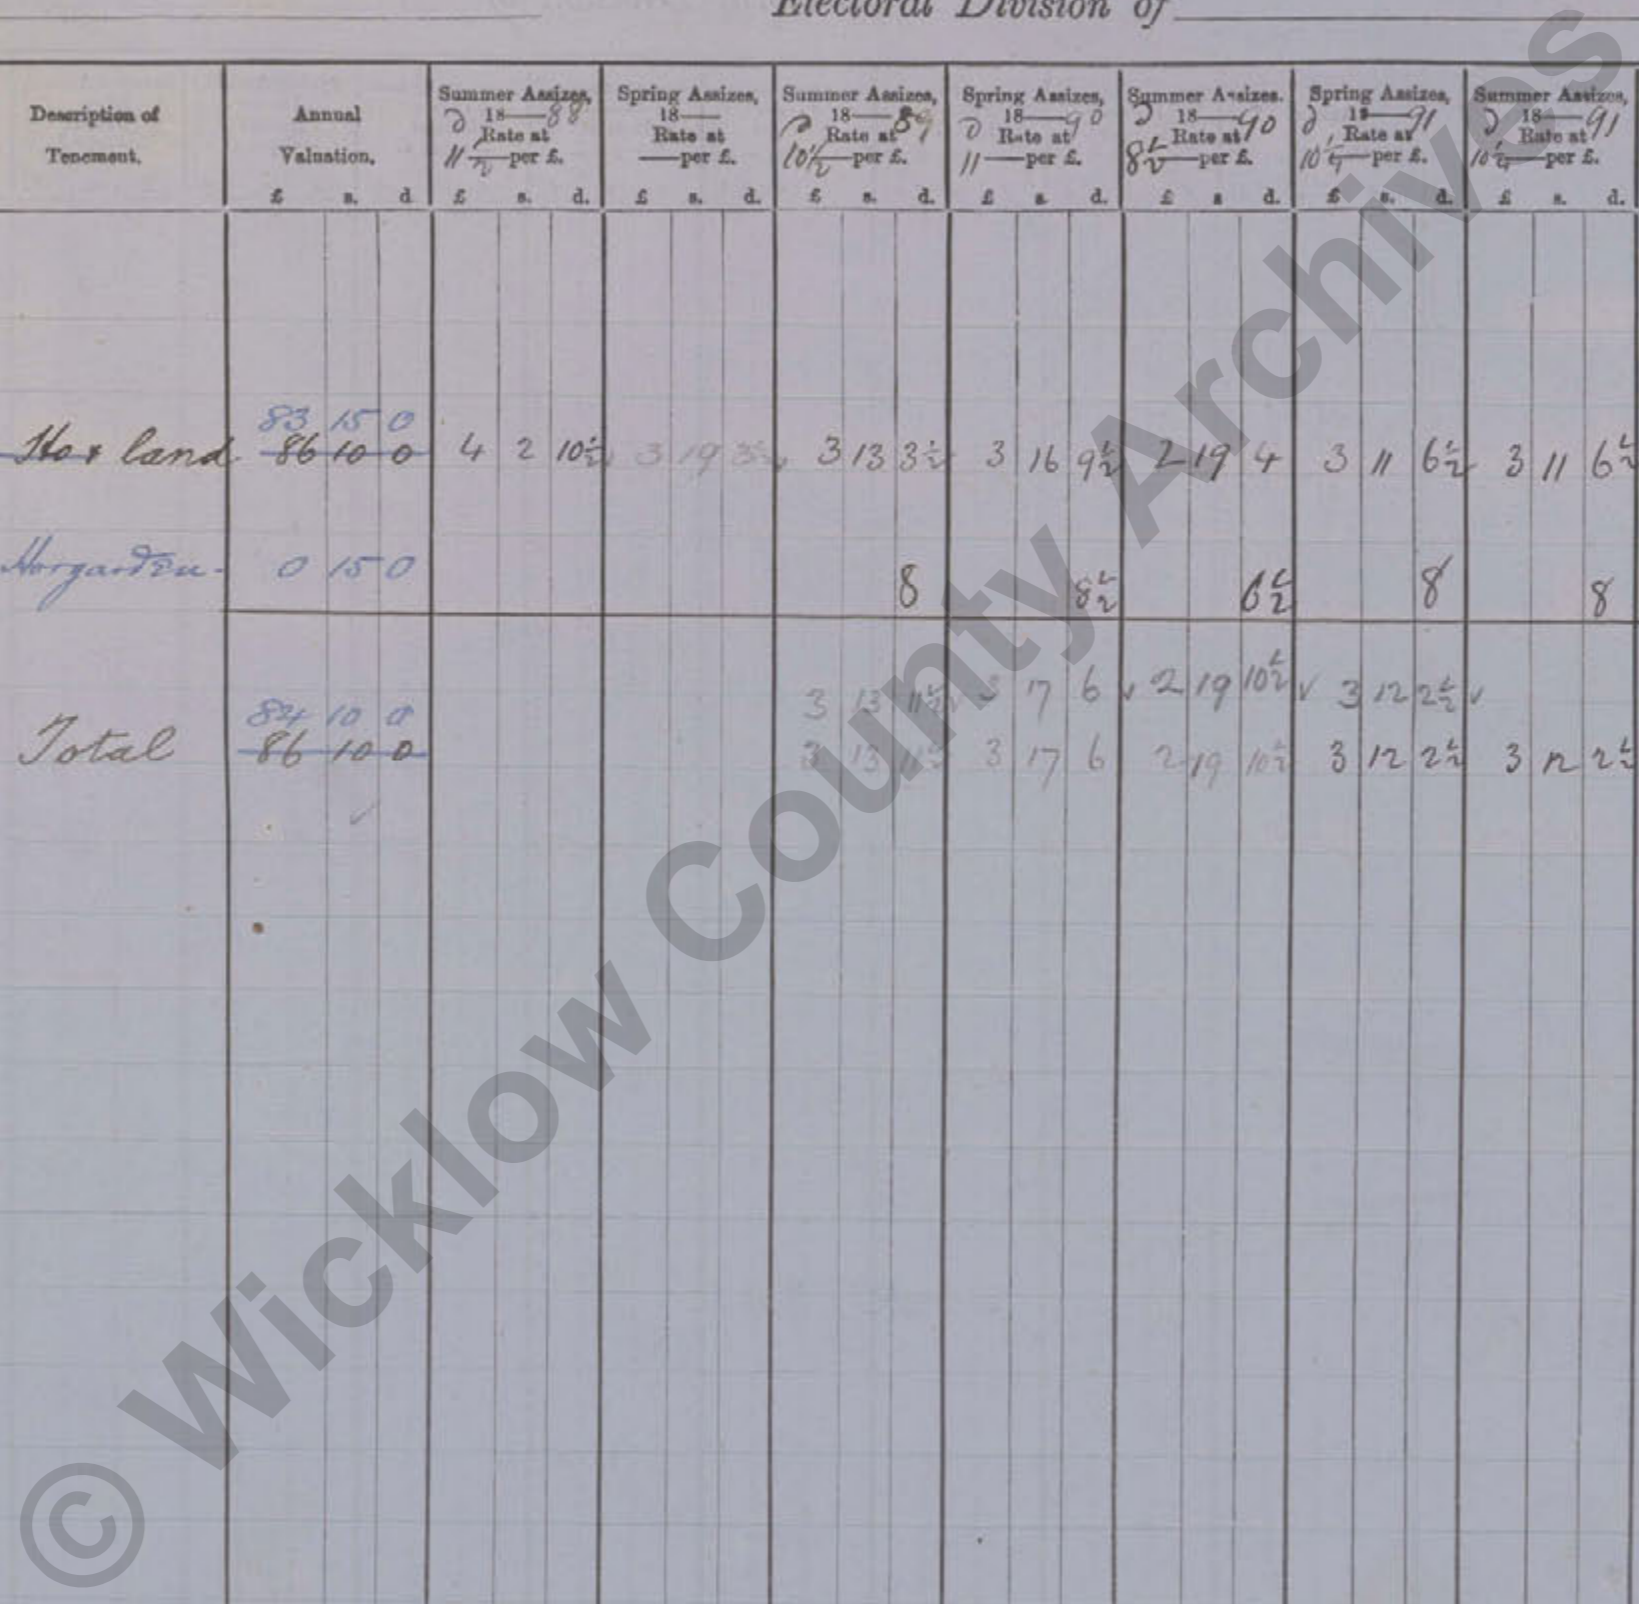 Electoral Division of
Description of Tenement. Annual Valuation. £ s. d
Summer Assizes, 1888 Rate at 11½d per £. £ s. d.
Spring Assizes, 18— Rate at — per £. £ s. d.
Summer Assizes, 1889 Rate at 10½ per £. £ s. d.
Spring Assizes, 1890 Rate at 11d per £. £ s. d.
Summer Assizes. 1890 Rate at 8½d per £. £ s d.
Spring Assizes, 1891 Rate at 10¼d per £. £ s. d.
Summer Assizes, 1891 Rate at 10¼d per £. £ s. d.
83 15 0
Ho & land 86 10 0 4 2 10½ 3 19 3½ 3 13 3½ 3 16 9½ 2 19 4 3 11 6½ 3 11 6½
Ho & garden 0 15 0 8 8½ 6½ 8 8
3 13 11½ 3 17 6 2 19 10½ 3 12 2½
84 10 0
Total 86 10 0 3 13 11½ 3 17 6 2 19 10½ 3 12 2½ 3 12 2½
© Wicklow County Archives